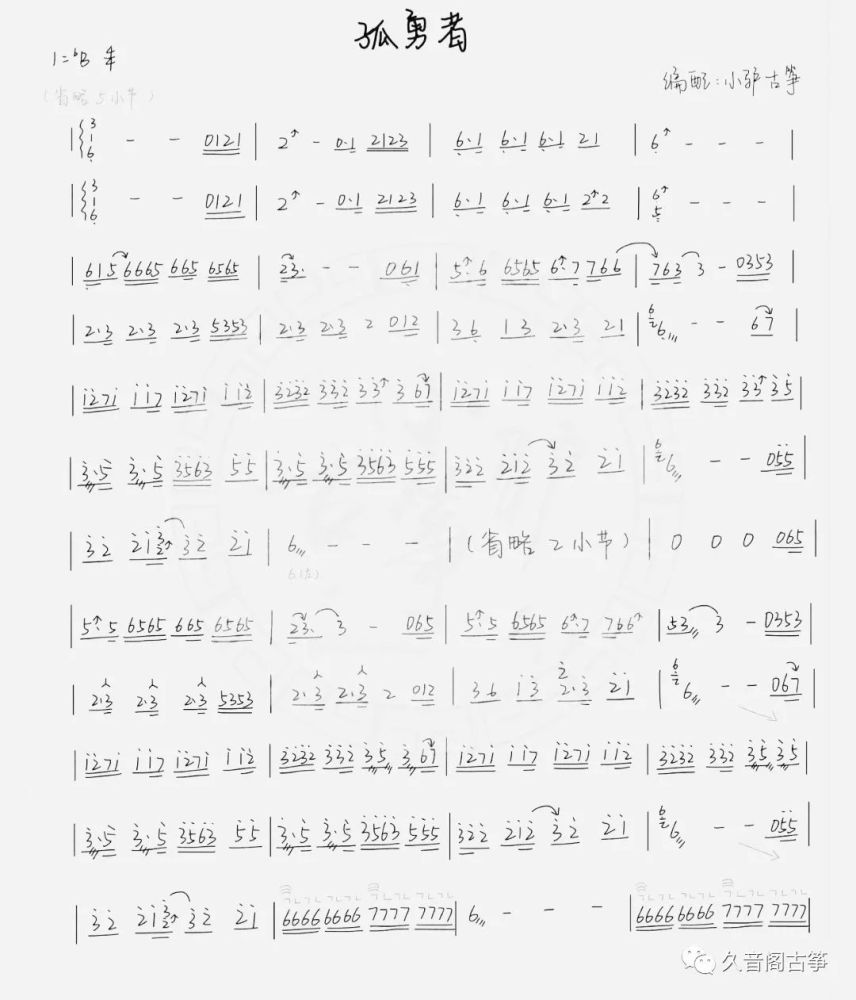 孤勇者
1=♭B 4/4
编配:小驴古筝
(省略5小节)
| 3 1 6 - - 0121 | 2↑ - 0·1 2123 | 6·1 6·1 6·1 21 | 6↑ - - - |
| 3 1 6 - - 0121 | 2↑ - 0·1 2123 | 6·1 6·1 6·1 2↑2 | 6↑ 5 - - - |
| 615 6665 665 6565 | 23· - - 061 | 5↑·6 6565 6↑·7 766 | 763 3 - 0353 |
| 2·3 2·3 2·3 5353 | 2·3 2·3 2 012 | 36 13 2·3 21 | 6 - - 67 |
| i̇2̇7i̇ i̇i̇7 i̇2̇7i̇ i̇i̇2̇ | 3̇2̇3̇2̇ 3̇3̇2̇ 3̇3̇↑ 3̇67 | i̇2̇7i̇ i̇i̇7 i̇2̇7i̇ i̇i̇2̇ | 3̇2̇3̇2̇ 3̇3̇2̇ 3̇3̇↑ 3̇5̇ |
| 3̇·5̇ 3̇·5̇ 3̇5̇6̇3̇ 5̇5̇ | 3̇·5̇ 3̇·5̇ 3̇5̇6̇3̇ 5̇5̇5̇ | 3̇2̇2̇ 2̇i̇2̇ 3̇2̇ 2̇i̇ | 6 - - 05̇5̇ |
| 3̇2̇ 2̇i̇3̇↑ 3̇2̇ 2̇i̇ | 6 - - - | (省略2小节) | 0 0 0 065 |
| 5↑·5 6565 665 6565 | 23· 3 - 065 | 5↑·5 6565 6↑·7 766↑ | 53 3 - 0353 |
| 2·3 2·3 2·3 5353 | 2·3 2·3 2 012 | 36 i̇3̇ 2̇·3̇ 2̇i̇ | 6 - - 067 |
| i̇2̇7i̇ i̇i̇7 i̇2̇7i̇ i̇i̇2̇ | 3̇2̇3̇2̇ 3̇3̇2̇ 3̇5̇ 3̇67 | i̇2̇7i̇ i̇i̇7 i̇2̇7i̇ i̇i̇2̇ | 3̇2̇3̇2̇ 3̇3̇2̇ 3̇5̇ 3̇5̇ |
| 3̇·5̇ 3̇·5̇ 3̇5̇6̇3̇ 5̇5̇ | 3̇·5̇ 3̇·5̇ 3̇5̇6̇3̇ 5̇5̇5̇ | 3̇2̇2̇ 2̇i̇2̇ 3̇2̇ 2̇i̇ | 6 - - 05̇5̇ |
| 3̇2̇ 2̇i̇3̇↑ 3̇2̇ 2̇i̇ | 6666 6666 7777 7777 | 6 - - - | 6666 6666 7777 7777 |
久音阁古筝